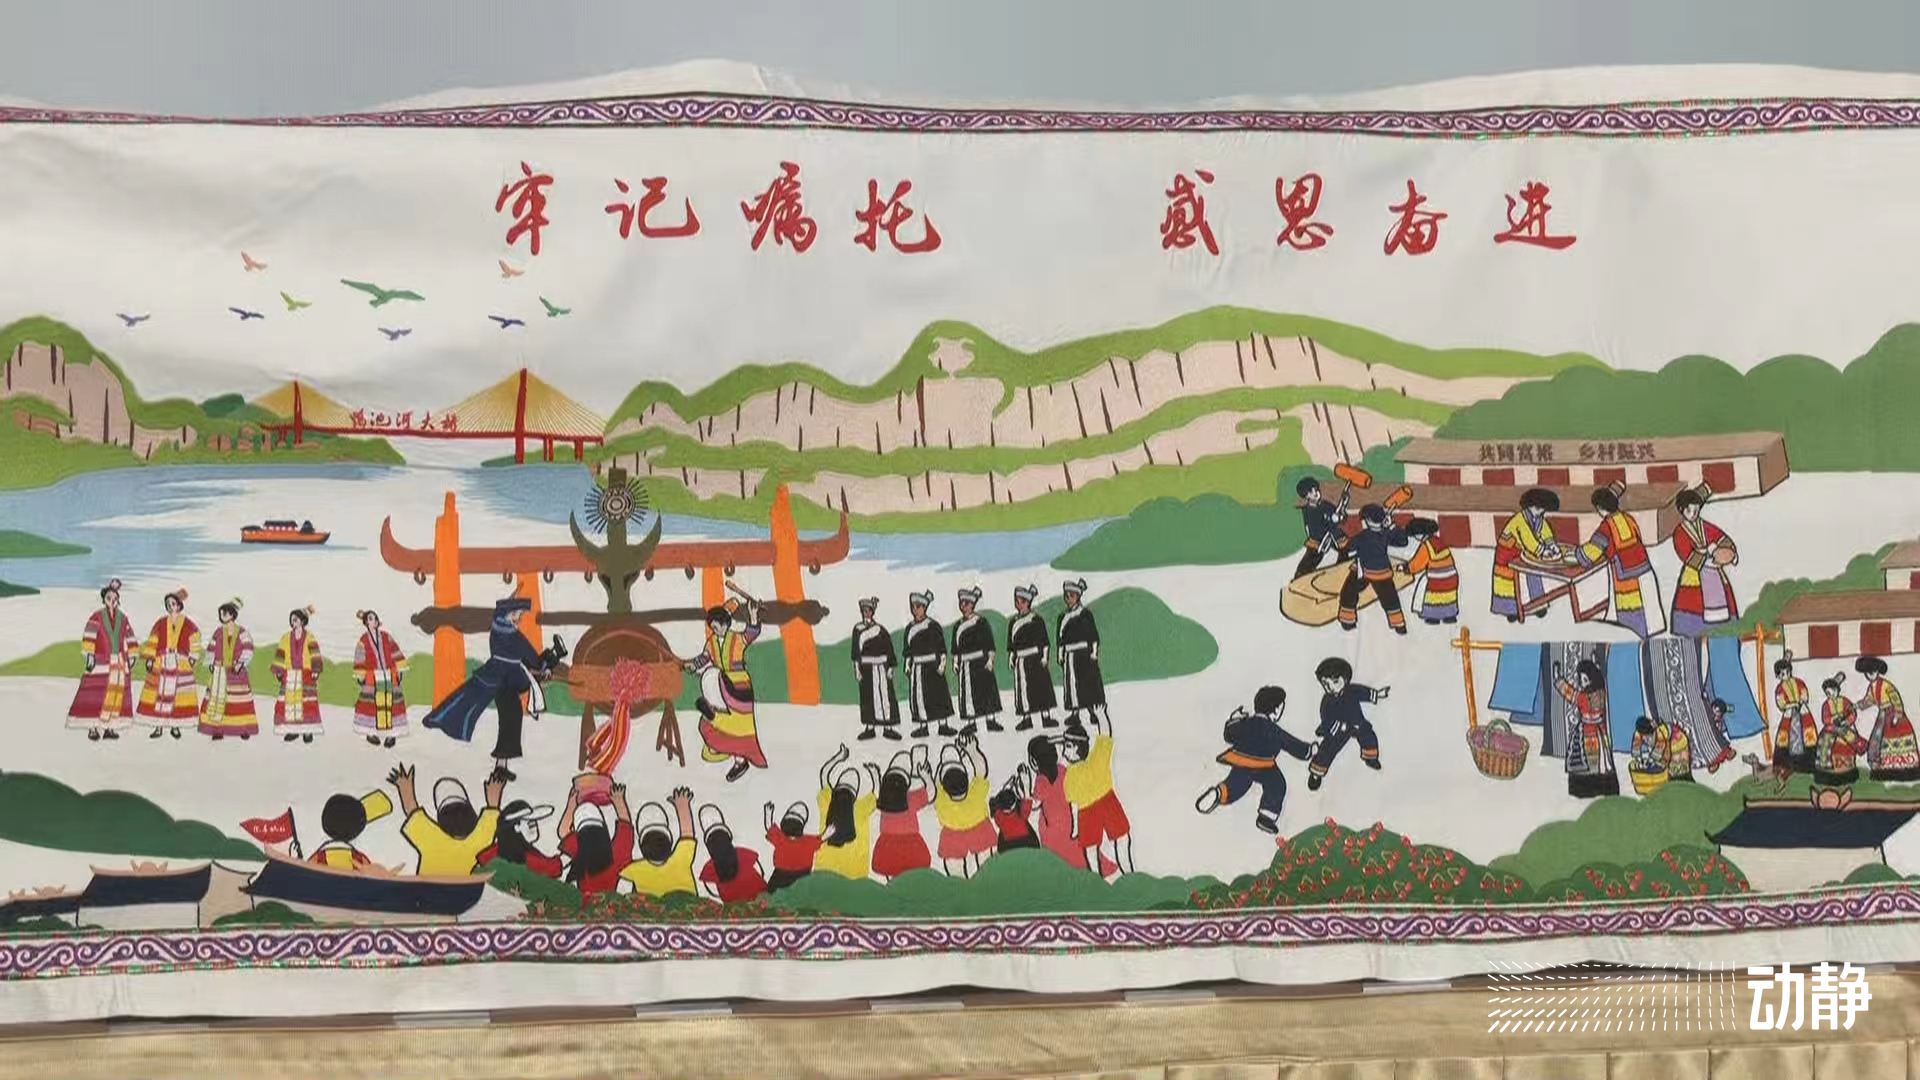 牢记嘱托 感恩奋进
鸭池河大桥
共同富裕 乡村振兴
动静